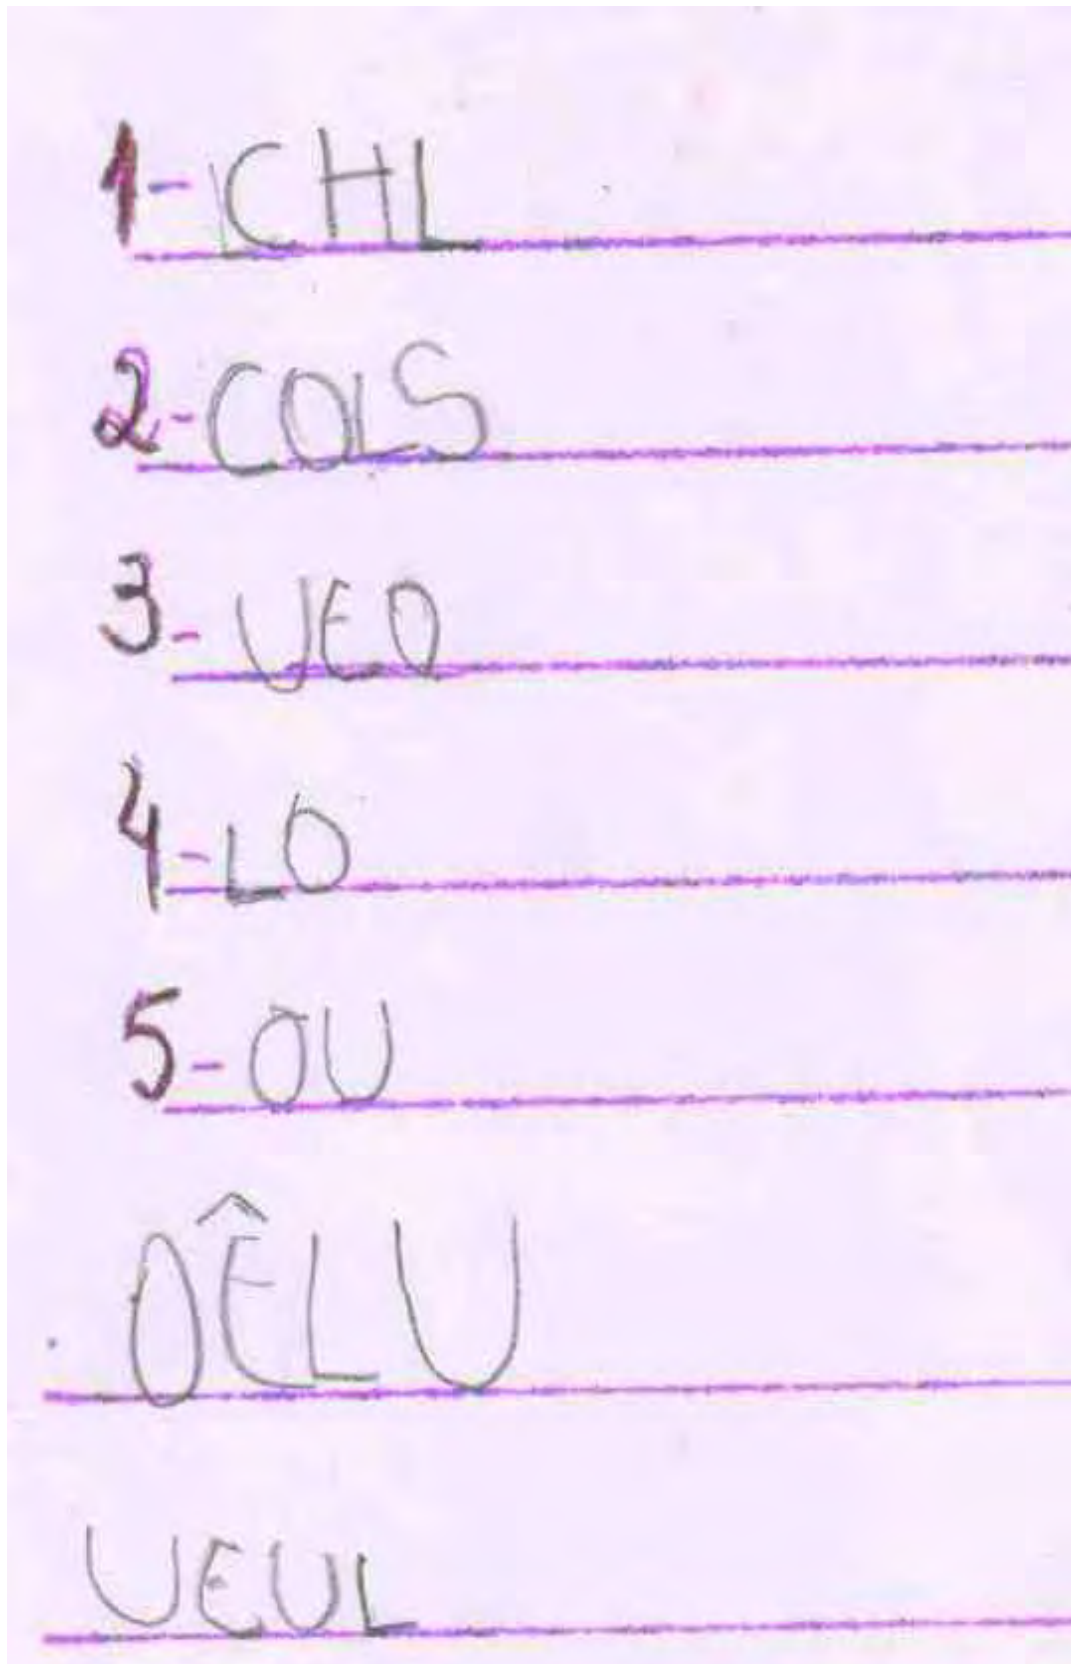 1- CHL
2- COLS
3- UEO
4- LO
5- OU
OÊLU
UEUL